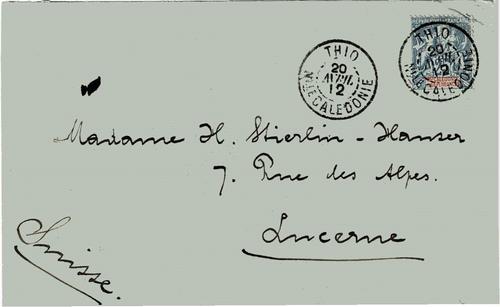 THIO
20
AVRIL
12
NLLE CALEDONIE
THIO
20
AVRIL
12
NLLE CALEDONIE
Madame H. Stierlin-Hauser
7. Rue des Alpes.
Lucerne
Suisse.